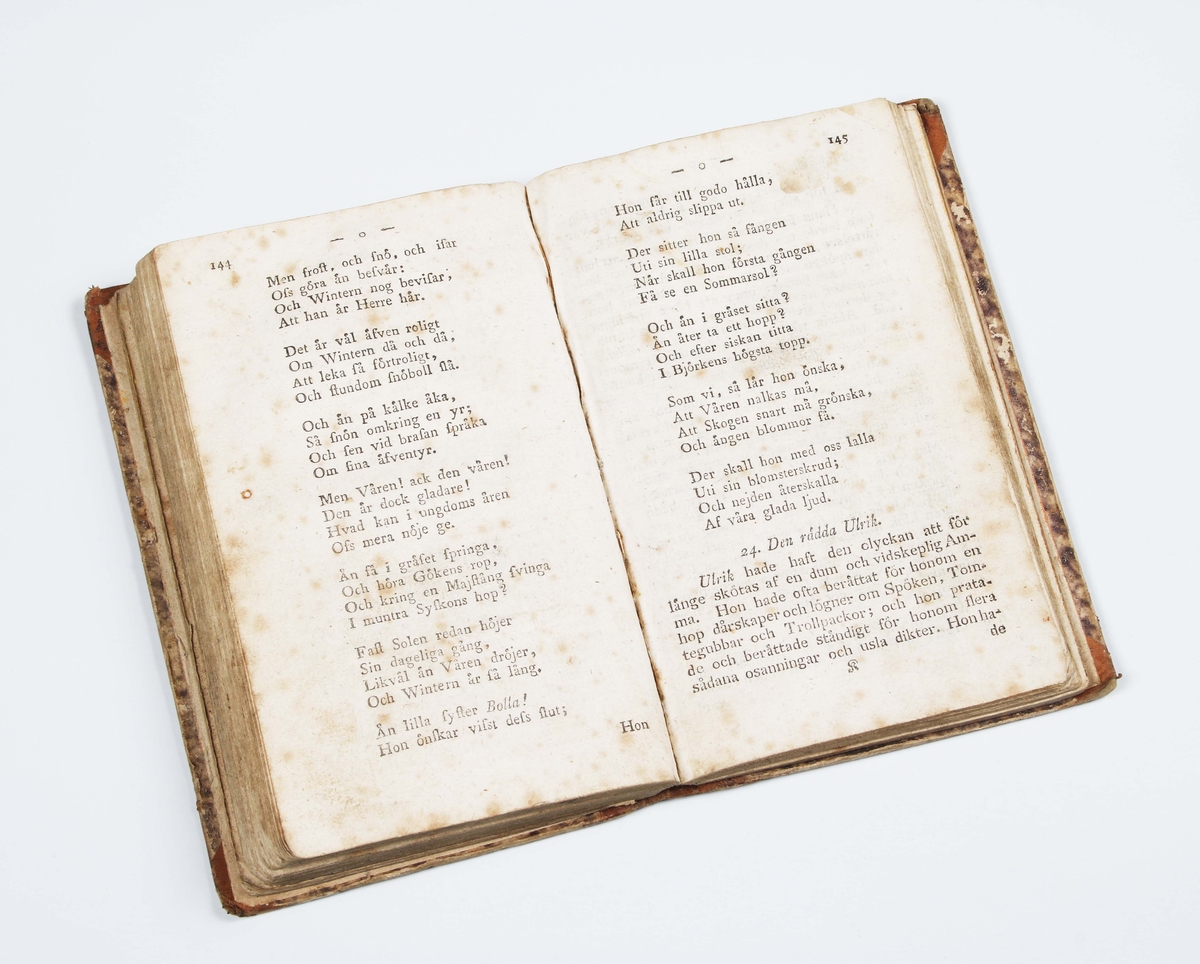 144
— o —
Men froſt, och ſnö, och iſar
Oſs göra än beſvär:
Och Wintern nog beviſar,
Att han är Herre här.
Det är väl äfven roligt
Om Wintern då och då,
Att leka ſå förtroligt,
Och ſtundom ſnöboll ſlå.
Och än på kälke åka,
Så ſnön omkring en yr;
Och ſen vid braſan ſpråka
Om ſina äfventyr.
Men Våren! ack den våren!
Den är dock gladare!
Hvad kan i ungdoms åren
Oſs mera nöje ge.
Än få i gräſet ſpringa,
Och höra Gökens rop,
Och kring en Majſtång ſvinga
I muntra Syſkons hop?
Faſt Solen redan höjer
Sin dageliga gång,
Likväl än Våren dröjer,
Och Wintern är ſå lång.
Än lilla ſyſter Bolla!
Hon önſkar viſst deſs ſlut;
Hon
145
— o —
Hon får till godo hålla,
Att aldrig slippa ut.
Der sitter hon så fången
Uti sin lilla stol;
När skall hon första gången
Få se en Sommarsol?
Och än i gräset sitta?
Än åter ta ett hopp?
Och efter siskan titta
I Björkens högsta topp.
Som vi, så lär hon önska,
Att Våren nalkas må,
Att Skogen snart må grönska,
Och ängen blommor få.
Der skall hon med oss lalla
Uti sin blomsterskrud;
Och nejden återskalla
Af våra glada ljud.
24. Den rädda Ulrik.
Ulrik hade haft den olyckan att för
länge skötas af en dum och vidskeplig Am-
ma. Hon hade ofta berättat för honom en
hop dårskaper och lögner om Spöken, Tom-
tegubbar och Trollpackor; och hon prata-
de och berättade ständigt för honom flera
sådana osanningar och usla dikter. Hon ha-
de